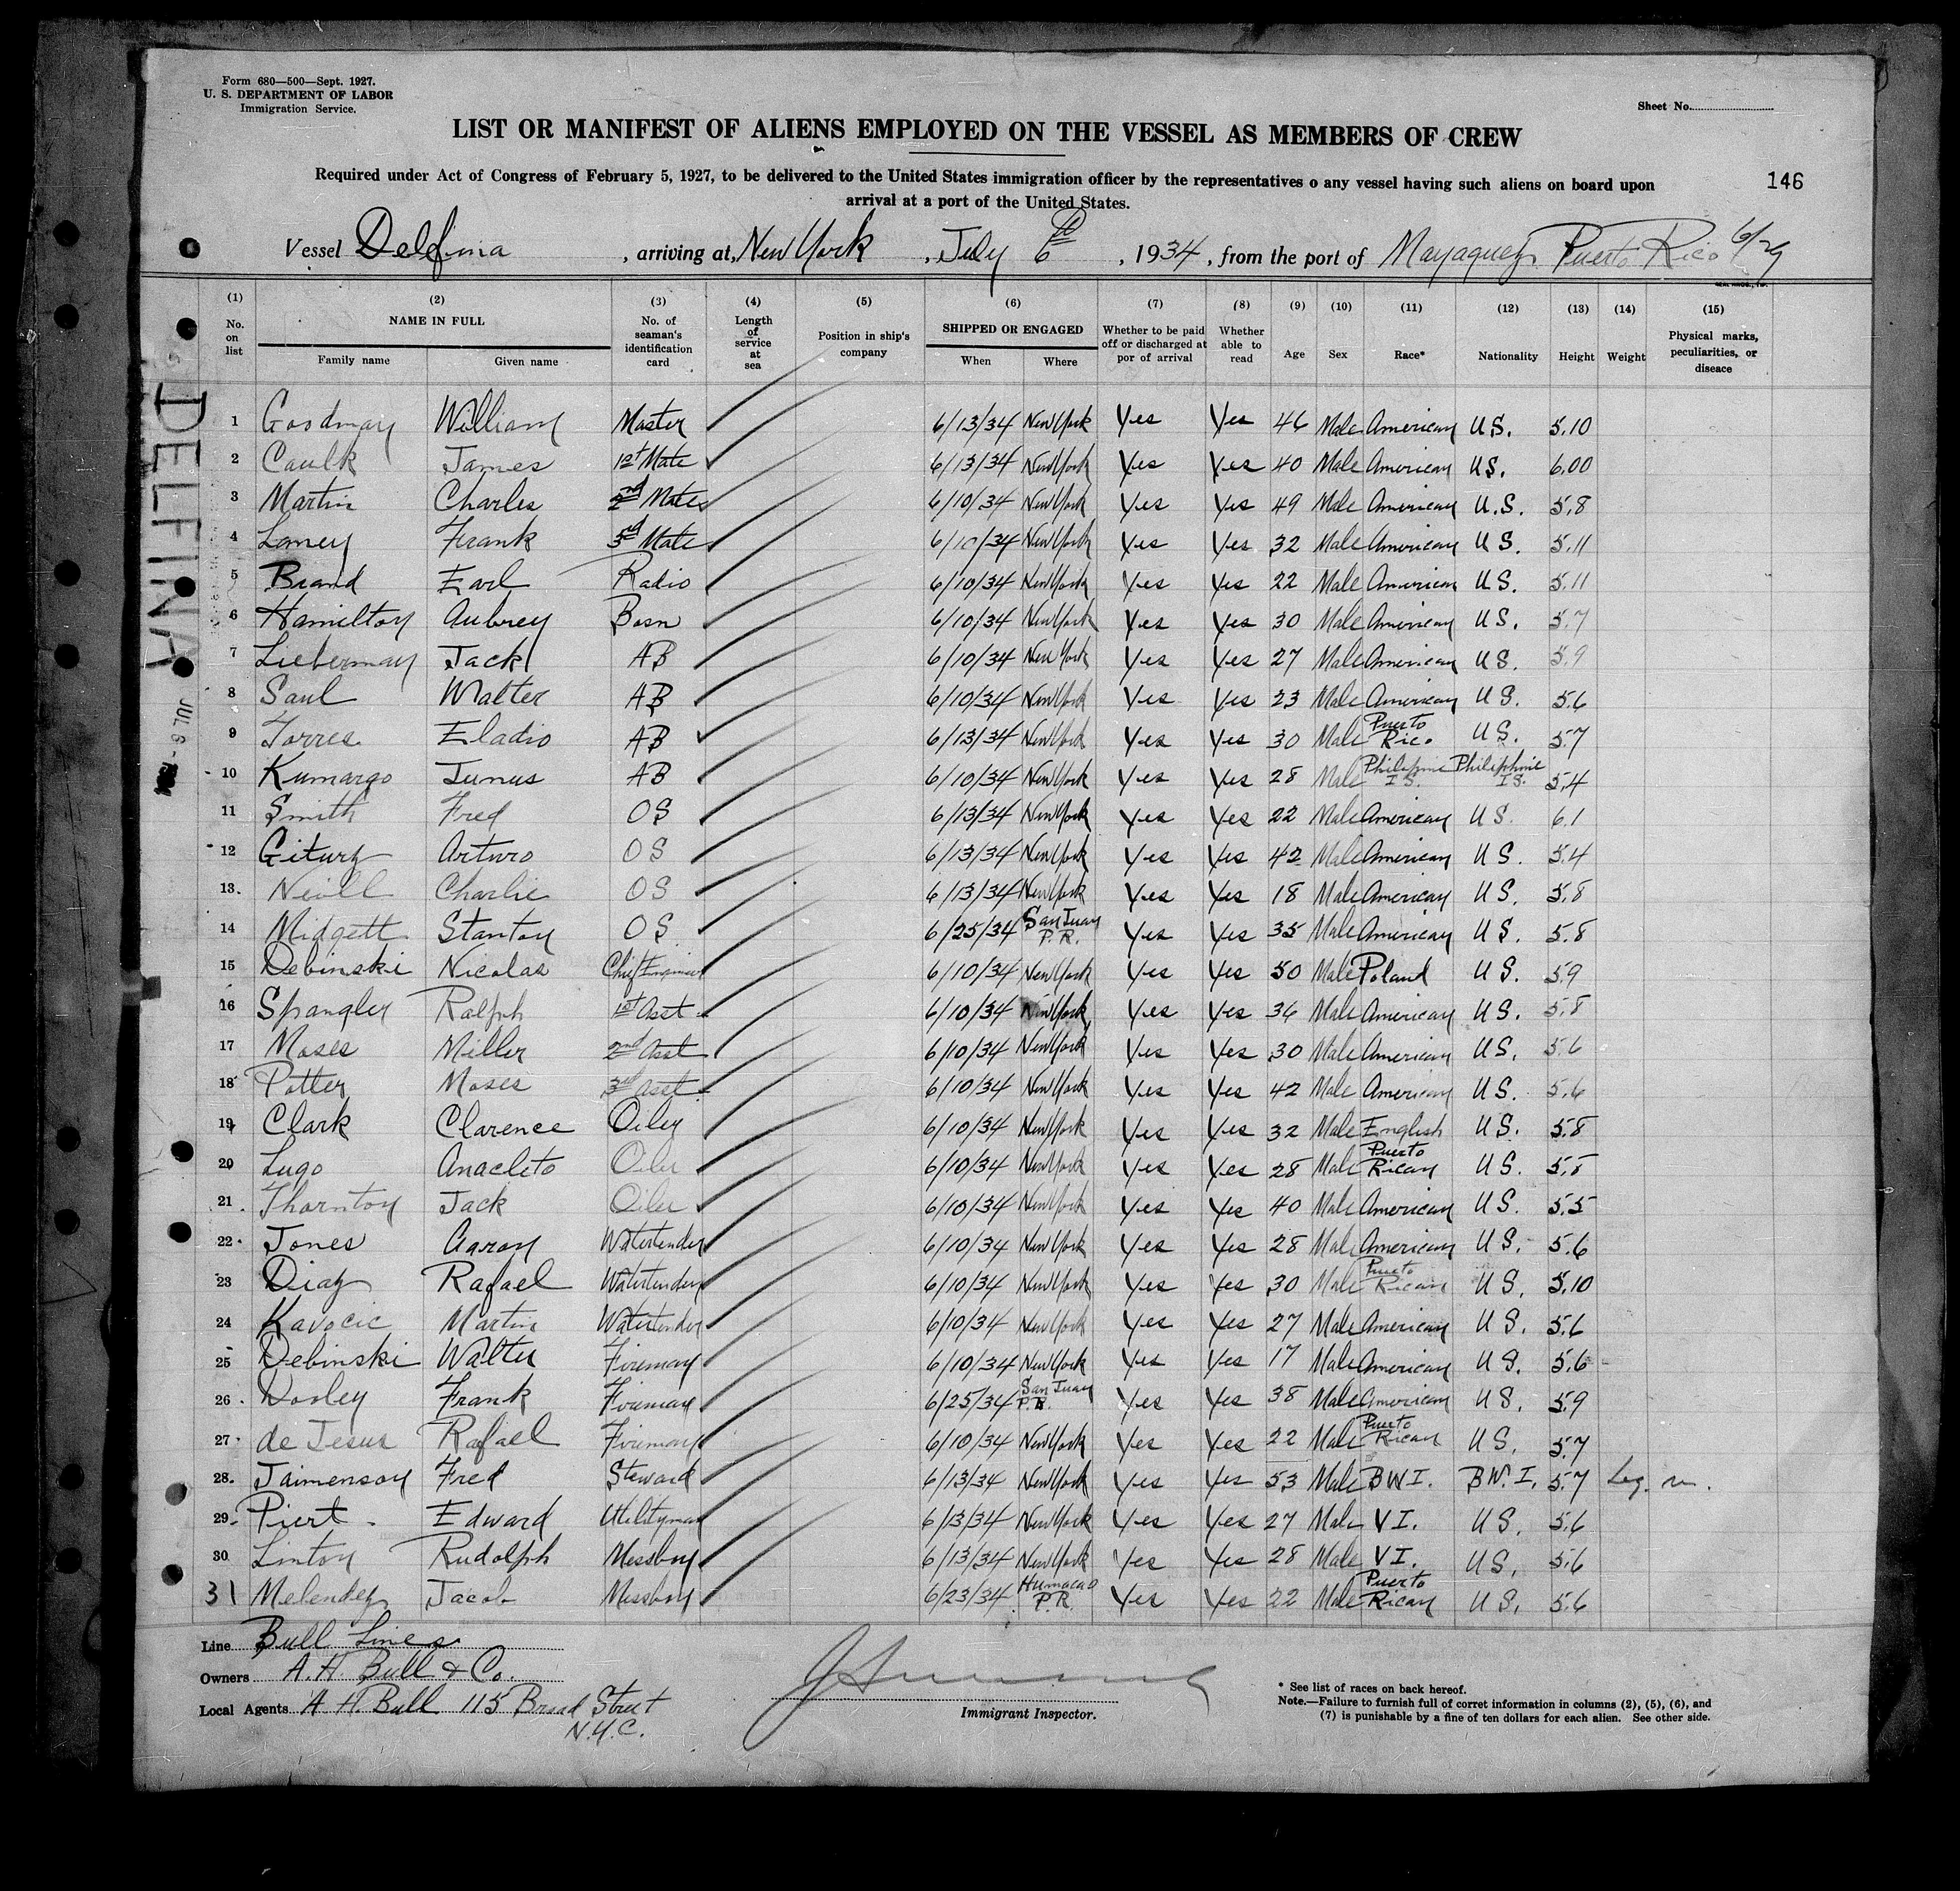 Form 680—500—Sept. 1927.
U. S. DEPARTMENT OF LABOR
Immigration Service.
Sheet No.
LIST OR MANIFEST OF ALIENS EMPLOYED ON THE VESSEL AS MEMBERS OF CREW
Required under Act of Congress of February 5, 1927, to be delivered to the United States immigration officer by the representatives o any vessel having such aliens on board upon
arrival at a port of the United States.
146
Vessel Delfina, arriving at, New York, July 6th, 1934, from the port of Mayaguez Puerto Rico 6/29
(1) No. on list (2) NAME IN FULL Family name Given name (3) No. of seaman's identification card (4) Length of service at sea (5) Position in ship's company (6) SHIPPED OR ENGAGED When Where (7) Whether to be paid off or discharged at por of arrival (8) Whether able to read (9) Age (10) Sex (11) Race* (12) Nationality (13) Height (14) Weight (15) Physical marks, peculiarities, or diseace
DELFINA
1 Goodman William Master 6/13/34 New York Yes Yes 46 Male American U.S. 5.10
2 Caulk James 1st Mate 6/13/34 New York Yes Yes 40 Male American U.S. 6.00
3 Martin Charles 2nd Mate 6/10/34 New York Yes Yes 49 Male American U.S. 5.8
4 Laney Frank 3d Mate 6/10/34 New York Yes Yes 32 Male American U.S. 5.11
5 Brand Earl Radio 6/10/34 New York Yes Yes 22 Male American U.S. 5.11
6 Hamilton Aubrey Bosn 6/10/34 New York Yes Yes 30 Male American U.S. 5.7
7 Lieberman Jack AB 6/10/34 New York Yes Yes 27 Male American U.S. 5.9
8 Saul Walter AB 6/10/34 New York Yes Yes 23 Male American U.S. 5.6
9 Torres Eladio AB 6/13/34 New York Yes Yes 30 Male Puerto Rico U.S. 5.7
10 Kumargo Junus AB 6/10/34 New York Yes Yes 28 Male Philiphine IS. Philiphine IS. 5.4
11 Smith Fred OS 6/13/34 New York Yes Yes 22 Male American U.S. 6.1
12 Giturz Arturo OS 6/13/34 New York Yes Yes 42 Male American U.S. 5.4
13 Neill Charlie OS 6/13/34 New York Yes Yes 18 Male American U.S. 5.8
14 Midgett Stanton OS 6/25/34 San Juan P.R. Yes Yes 35 Male American U.S. 5.8
15 Debinski Nicolas Chief Engineer 6/10/34 New York Yes Yes 50 Male Poland U.S. 5.9
16 Spangler Ralph 1st Asst 6/10/34 New York Yes Yes 36 Male American U.S. 5.8
17 Moses Miller 2nd Asst 6/10/34 New York Yes Yes 30 Male American U.S. 5.6
18 Potter Moses 3rd Asst 6/10/34 New York Yes Yes 42 Male American U.S. 5.6
19 Clark Clarence Oiler 6/10/34 New York Yes Yes 32 Male English U.S. 5.8
20 Lugo Anacleto Oiler 6/10/34 New York Yes Yes 28 Male Puerto Rican U.S. 5.5
21 Thornton Jack Oiler 6/10/34 New York Yes Yes 40 Male American U.S. 5.5
22 Jones Aaron Watertender 6/10/34 New York Yes Yes 28 Male American U.S. 5.6
23 Diaz Rafael Watertender 6/10/34 New York Yes Yes 30 Male Puerto Rican U.S. 5.10
24 Kavocic Martin Watertender 6/10/34 New York Yes Yes 27 Male American U.S. 5.6
25 Debinski Walter Fireman 6/10/34 New York Yes Yes 17 Male American U.S. 5.6
26 Dooley Frank Fireman 6/25/34 San Juan P.R. Yes Yes 38 Male American U.S. 5.9
27 de Jesus Rafael Fireman 6/10/34 New York Yes Yes 22 Male Puerto Rican U.S. 5.7
28 Jaimenson Fred Steward 6/13/34 New York Yes Yes 53 Male B.W.I. B.W.I. 5.7 Leg.
29 Piert Edward Utilityman 6/13/34 New York Yes Yes 27 Male V.I. U.S. 5.6
30 Linton Rudolph Messboy 6/13/34 New York Yes Yes 28 Male V.I. U.S. 5.6
31 Melendez Jacob Messboy 6/23/34 Humacao P.R. Yes Yes 22 Male Puerto Rican U.S. 5.6
Line Bull Lines
Owners A. H. Bull & Co.
Local Agents A H. Bull 115 Broad Street
N.Y.C.
Immigrant Inspector.
* See list of races on back hereof.
Note.—Failure to furnish full of corret information in columns (2), (5), (6), and
(7) is punishable by a fine of ten dollars for each alien. See other side.